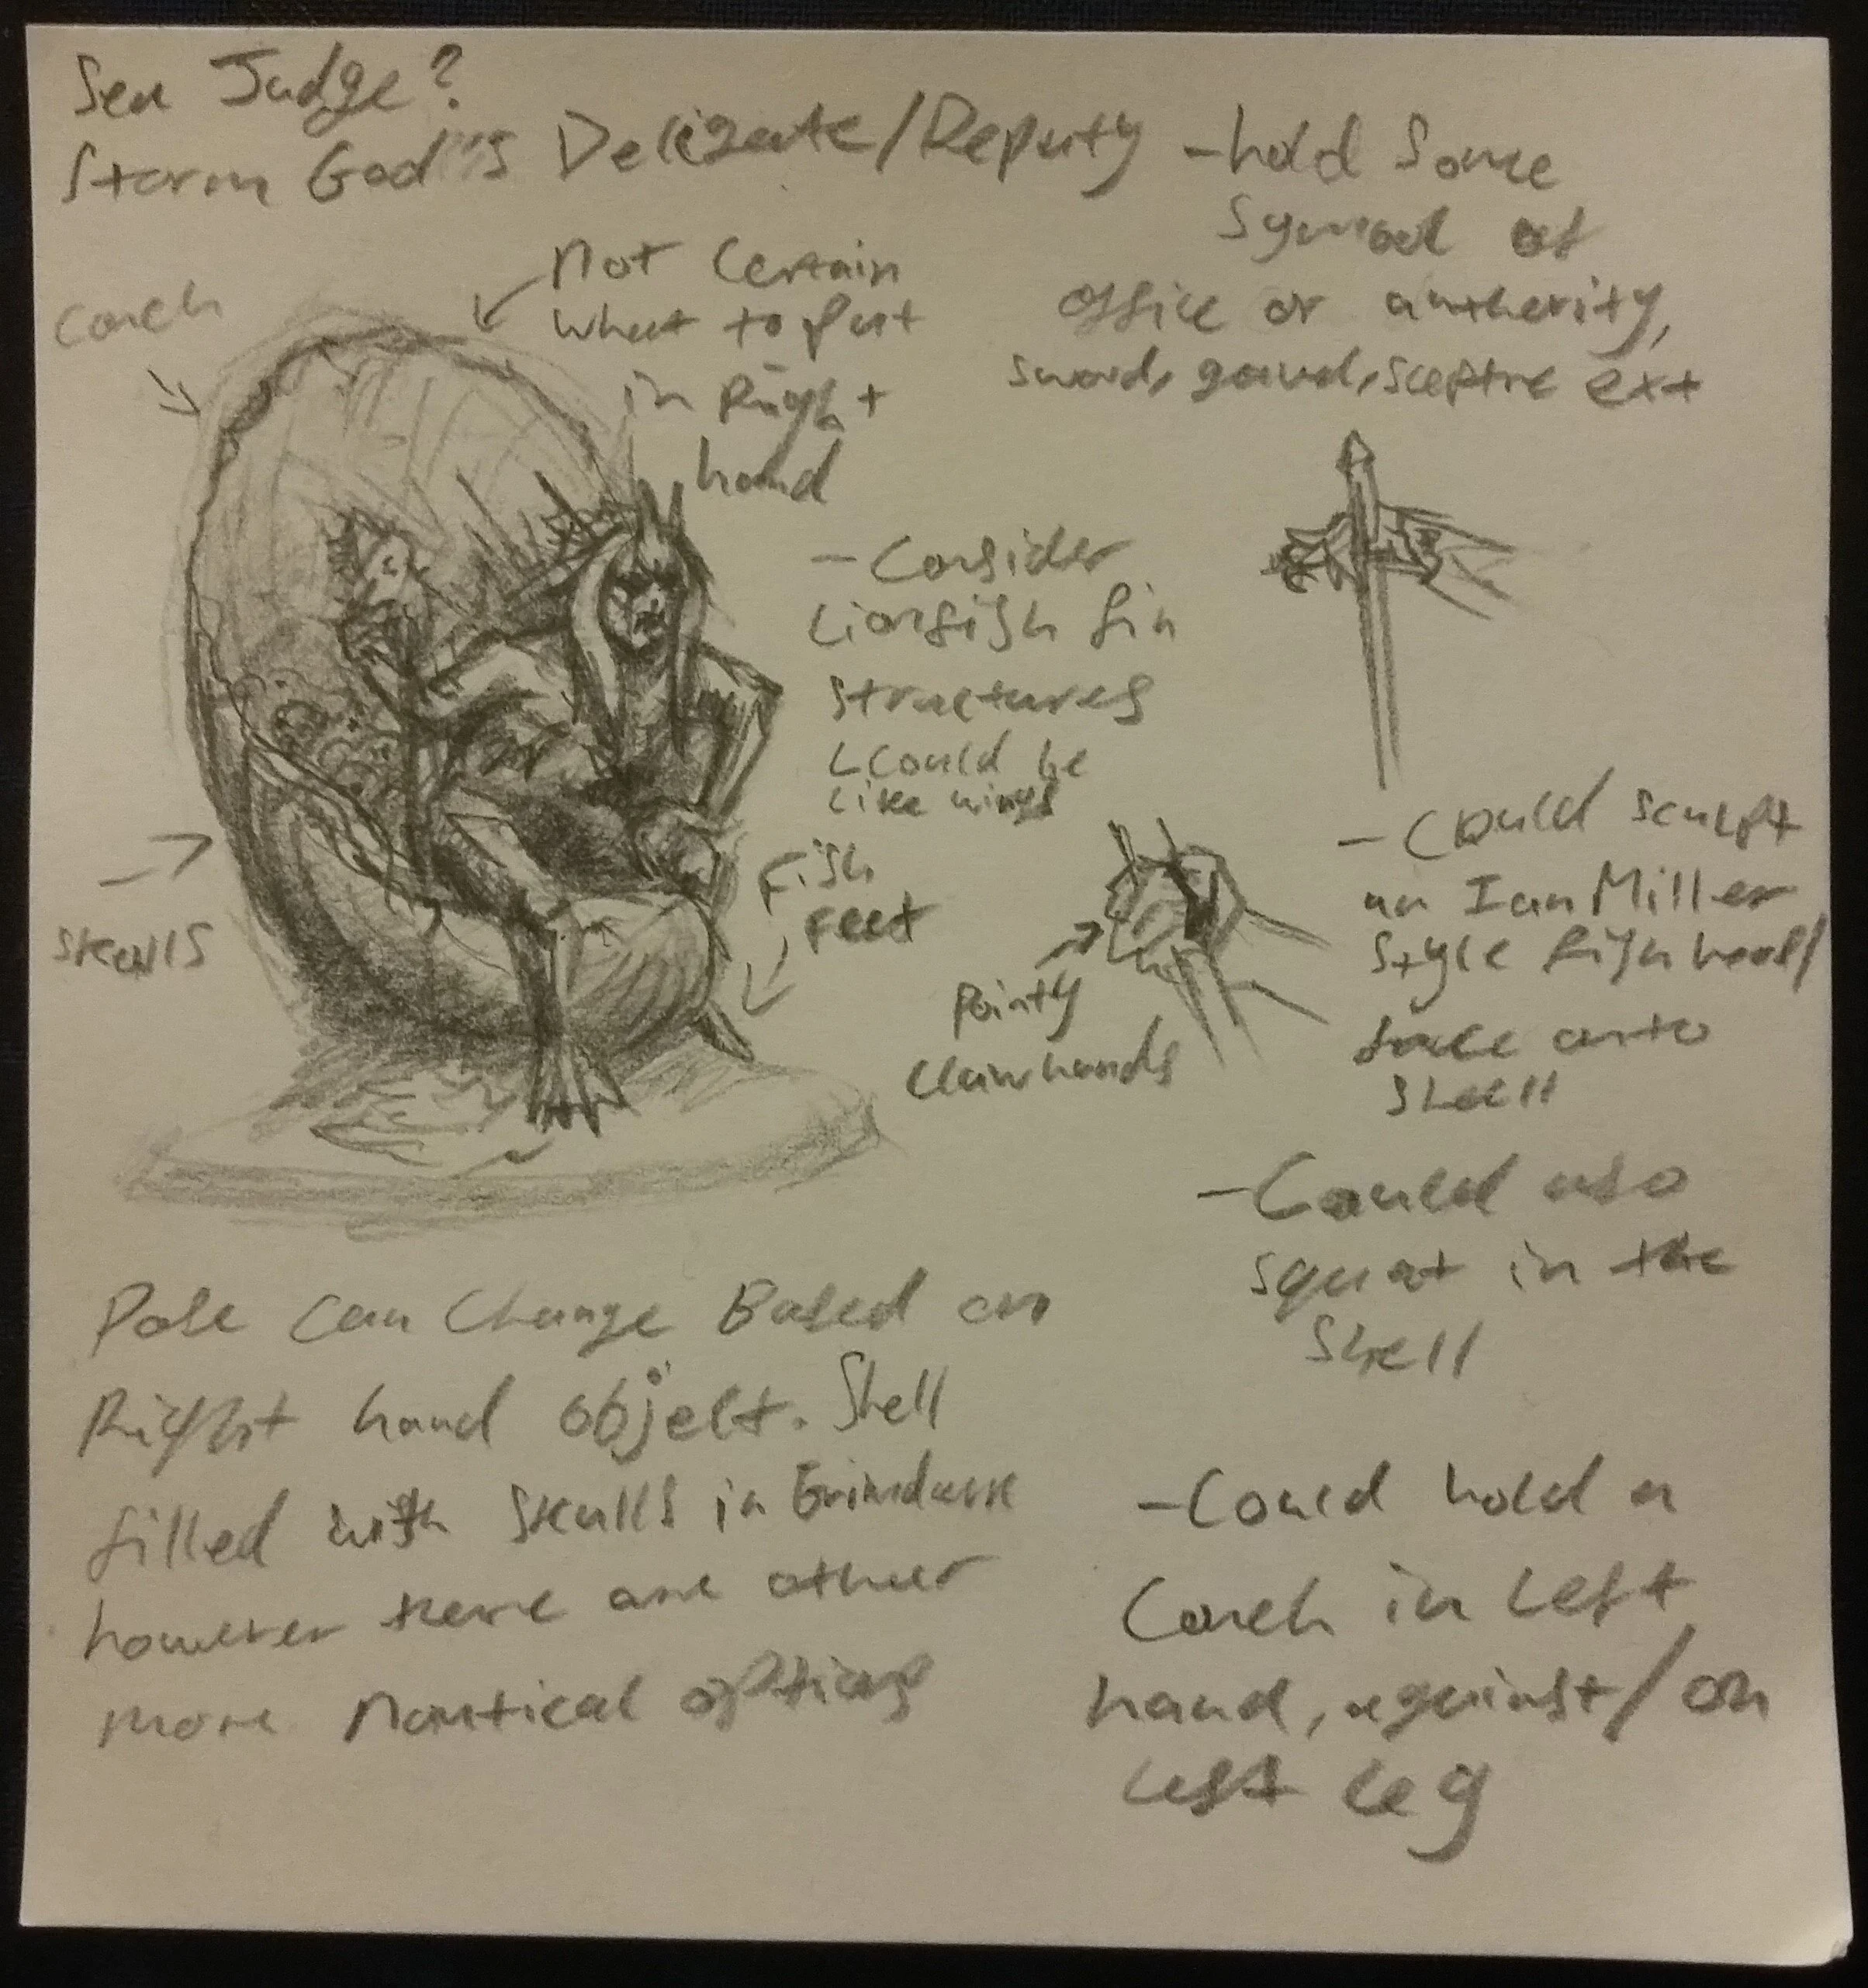 Sea Judge?
Storm God's Deligate/Deputy
-hold Some
Symbol of
office or autherity,
sword, gavel, sceptre ext
Conch
Not Certain
What to Put
in Right
hand
-Consider
Lionfish fin
structures
Could be
Like wings
Skulls
Fish
Feet
Pointy
Claw hands
-Could sculpt
an Ian Miller
Style fish head/
face onto
Shell
-Could also
squat in the
Shell
Pose Can Change Based on
Right hand object. Shell
filled with skulls in Grimdark
however there are other
more Nautical options
-Could hold a
Conch in Left
hand, against/on
Left Leg